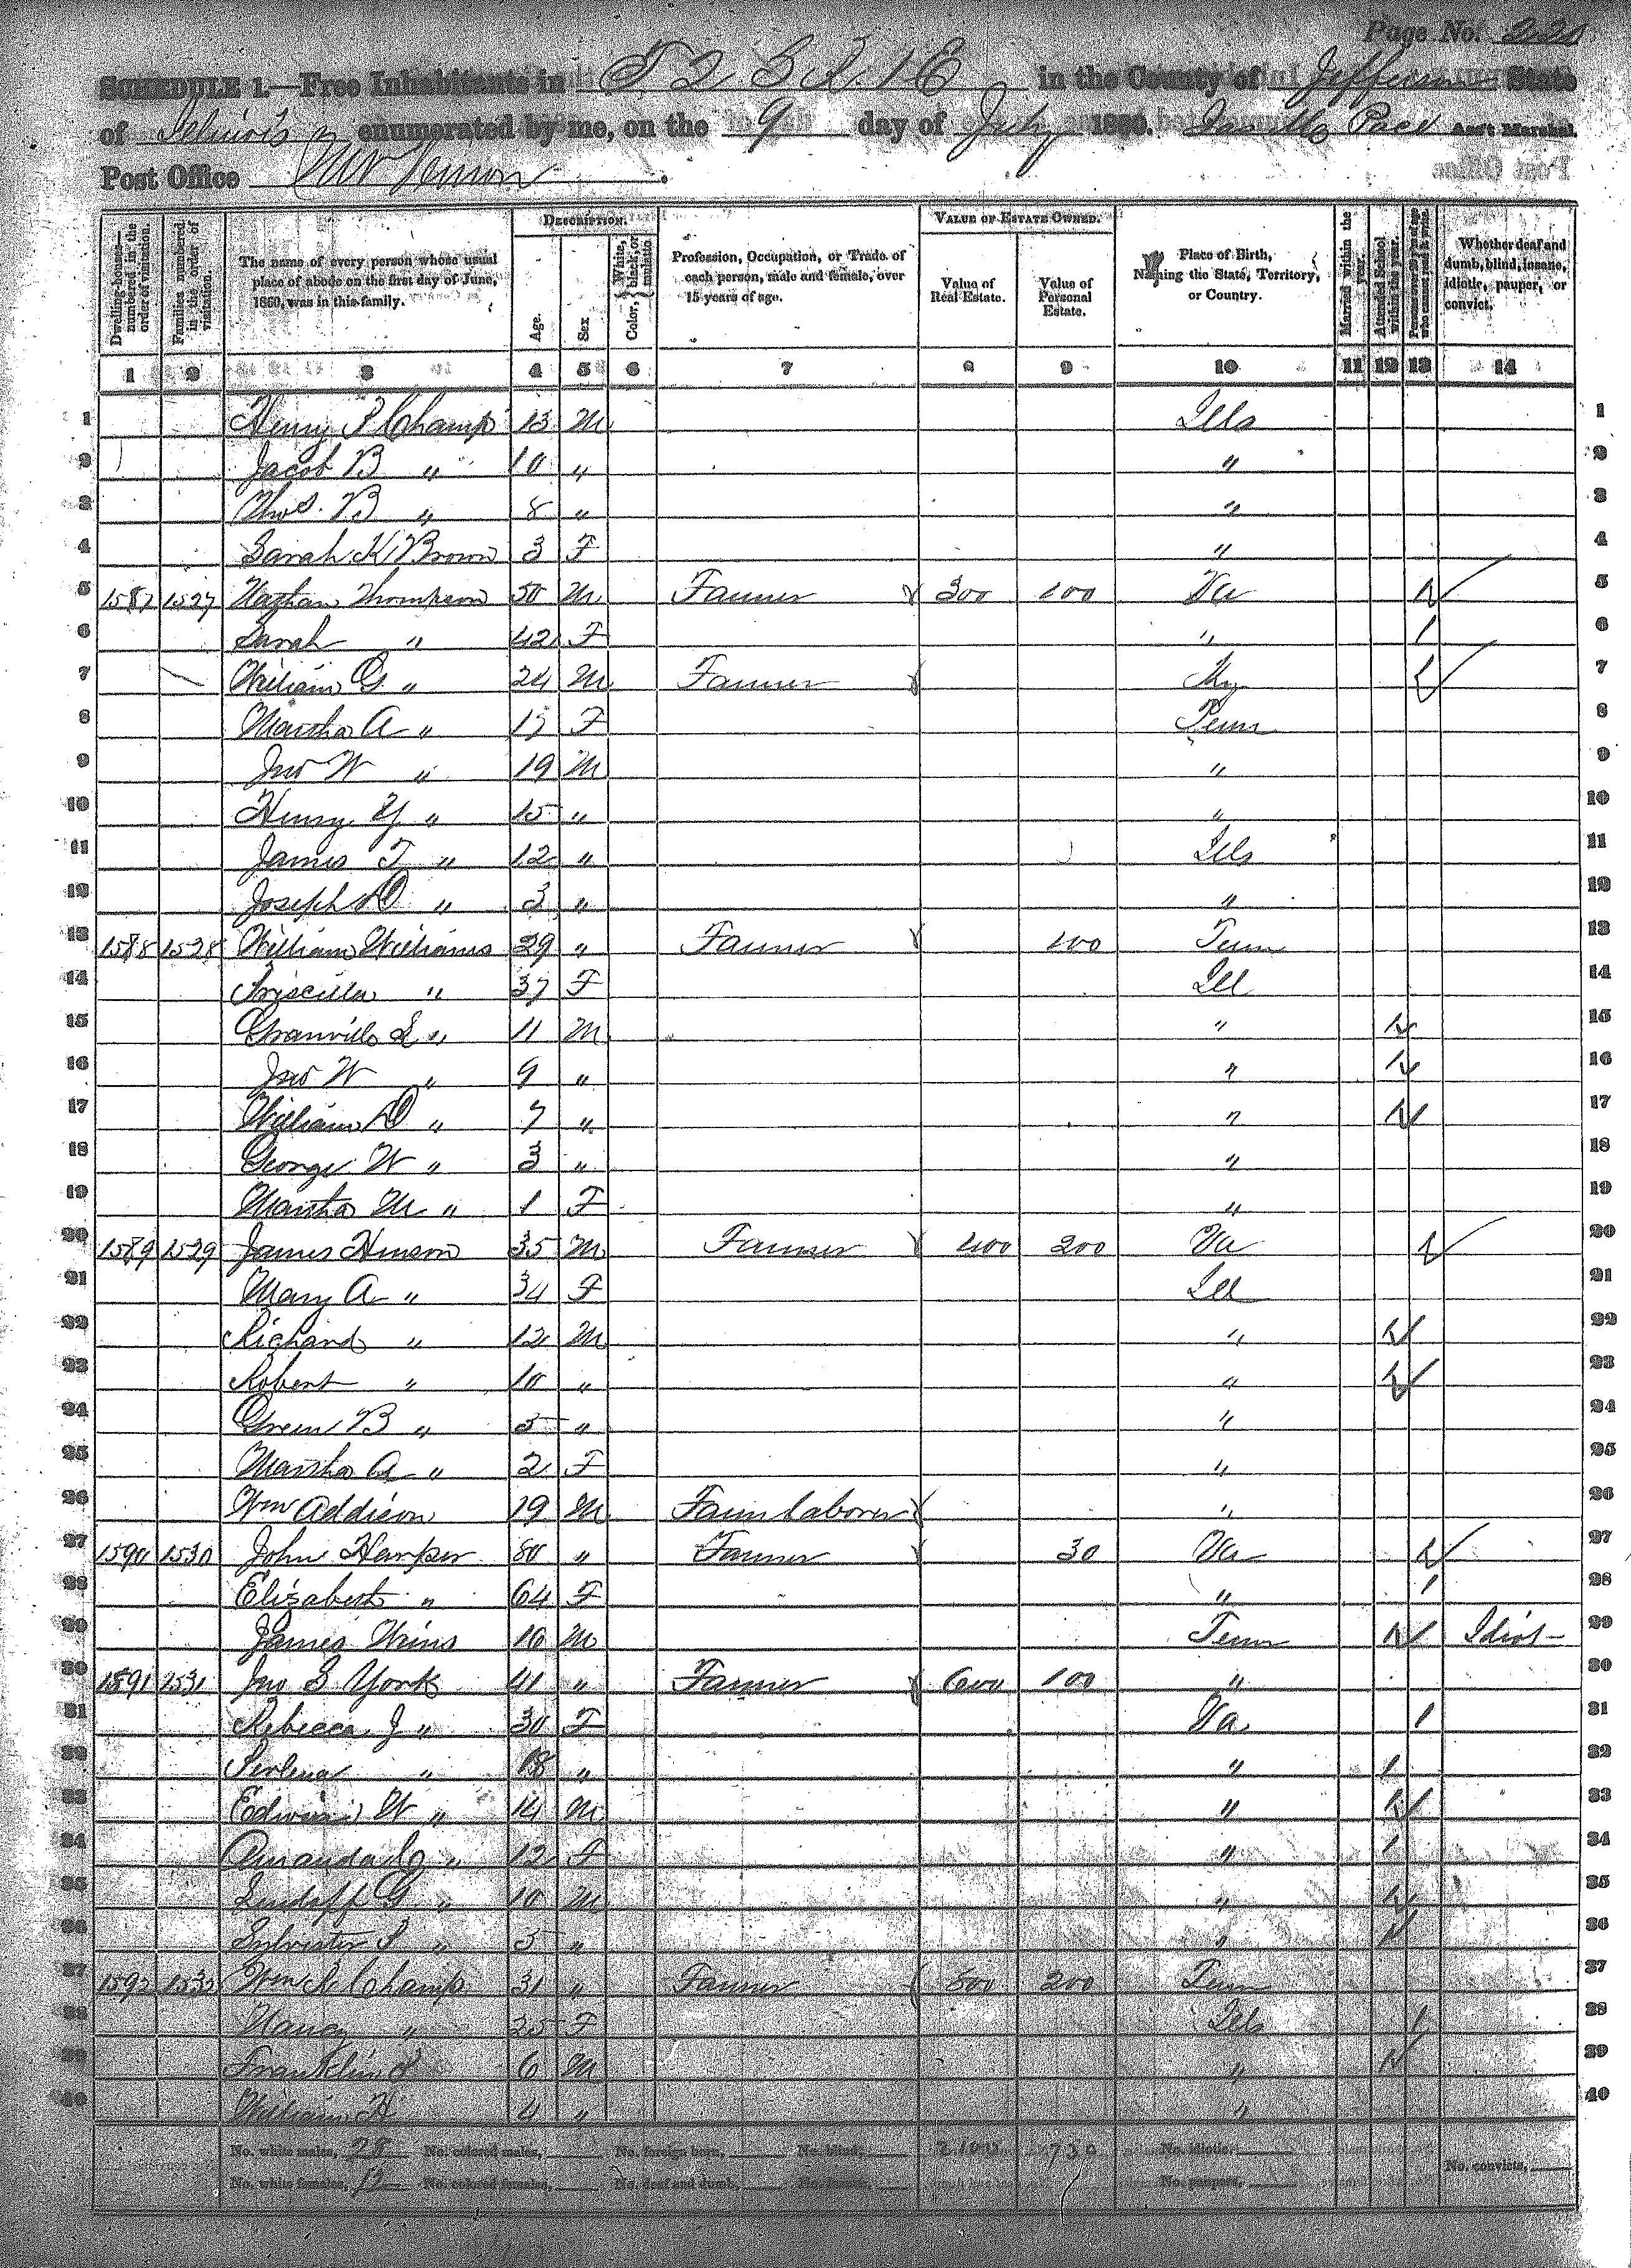 Page No. 220
SCHEDULE 1.—Free Inhabitants in T 2 S R 1 E in the County of Jefferson State
of Illinois enumerated by me, on the 9 day of July 1860. Pace Ass't Marshal.
Post Office Mt Vernon
Dwelling-houses—numbered in the order of visitation. Families numbered in the order of visitation. The name of every person whose usual place of abode on the first day of June, 1860, was in this family. DESCRIPTION. Age. Sex Color, White, black, or mulatto. Profession, Occupation, or Trade of each person, male and female, over 15 years of age. VALUE OF ESTATE OWNED. Value of Real Estate. Value of Personal Estate. Place of Birth, Naming the State, Territory, or Country. Married within the year. Attended School within the year. Whether deaf and dumb, blind, insane, idiotic, pauper, or convict.
1 2 3 4 5 6 7 8 9 10 11 12 13 14
1 Henry P Champ 13 M Ills 1
2 Jacob B " 10 " " 2
3 Thos. B " 8 " " 3
4 Sarah K Brown 3 F " 4
5 1587 1527 Nathan Thompson 50 M Farmer 300 100 Va 1 5
6 Sarah " 42 F " 1 6
7 William G " 24 M Farmer Ky 1 7
8 Martha A " 17 F Tenn 8
9 Jno W " 19 M " 9
10 Henry Y " 15 " " 10
11 James T " 12 " Ills 11
12 Joseph D " 3 " " 12
13 1588 1528 William Williams 39 " Farmer 100 Tenn 13
14 Priscilla " 37 F Ill 14
15 Granville " 11 M " 1 15
16 Jno W " 9 " " 1 16
17 William D " 7 " " 1 17
18 George W " 3 " " 18
19 Martha M " 1 F " 19
20 1589 1529 James Hinson 35 M Farmer 400 200 Va 1 20
21 Mary A " 34 F Ill 21
22 Richard " 12 M " 1 22
23 Robert " 10 " " 1 23
24 Green B " 5 " " 24
25 Martha A " 2 F " 25
26 Wm Addison 19 M Farm Laborer " 26
27 1590 1530 John Harper 80 " Farmer 30 Va 1 27
28 Elizabeth " 64 F " 1 28
29 James 16 M Tenn 1 Idiot 29
30 1591 1531 Jno S York 41 " Farmer 600 100 " 30
31 Rebecca J " 30 F Va 1 31
32 " 18 " " 1 32
33 Edwin W " 14 M " 1 33
34 Amanda " 12 F " 1 34
35 G " 10 M " 1 35
36 Sylvester " 5 " " 1 36
37 1592 1532 Wm R Champ 31 " Farmer 800 200 Tenn 37
38 Nancy " 25 F Ills 1 38
39 Franklin 6 M " 1 39
40 William H 4 " " 40
No. white males, 28 No. colored males, No. foreign born, No. blind, 2100 730 No. idiotic, No. convicts,
No. white females, 12 No. colored females, No. deaf and dumb, No. insane, No. paupers,